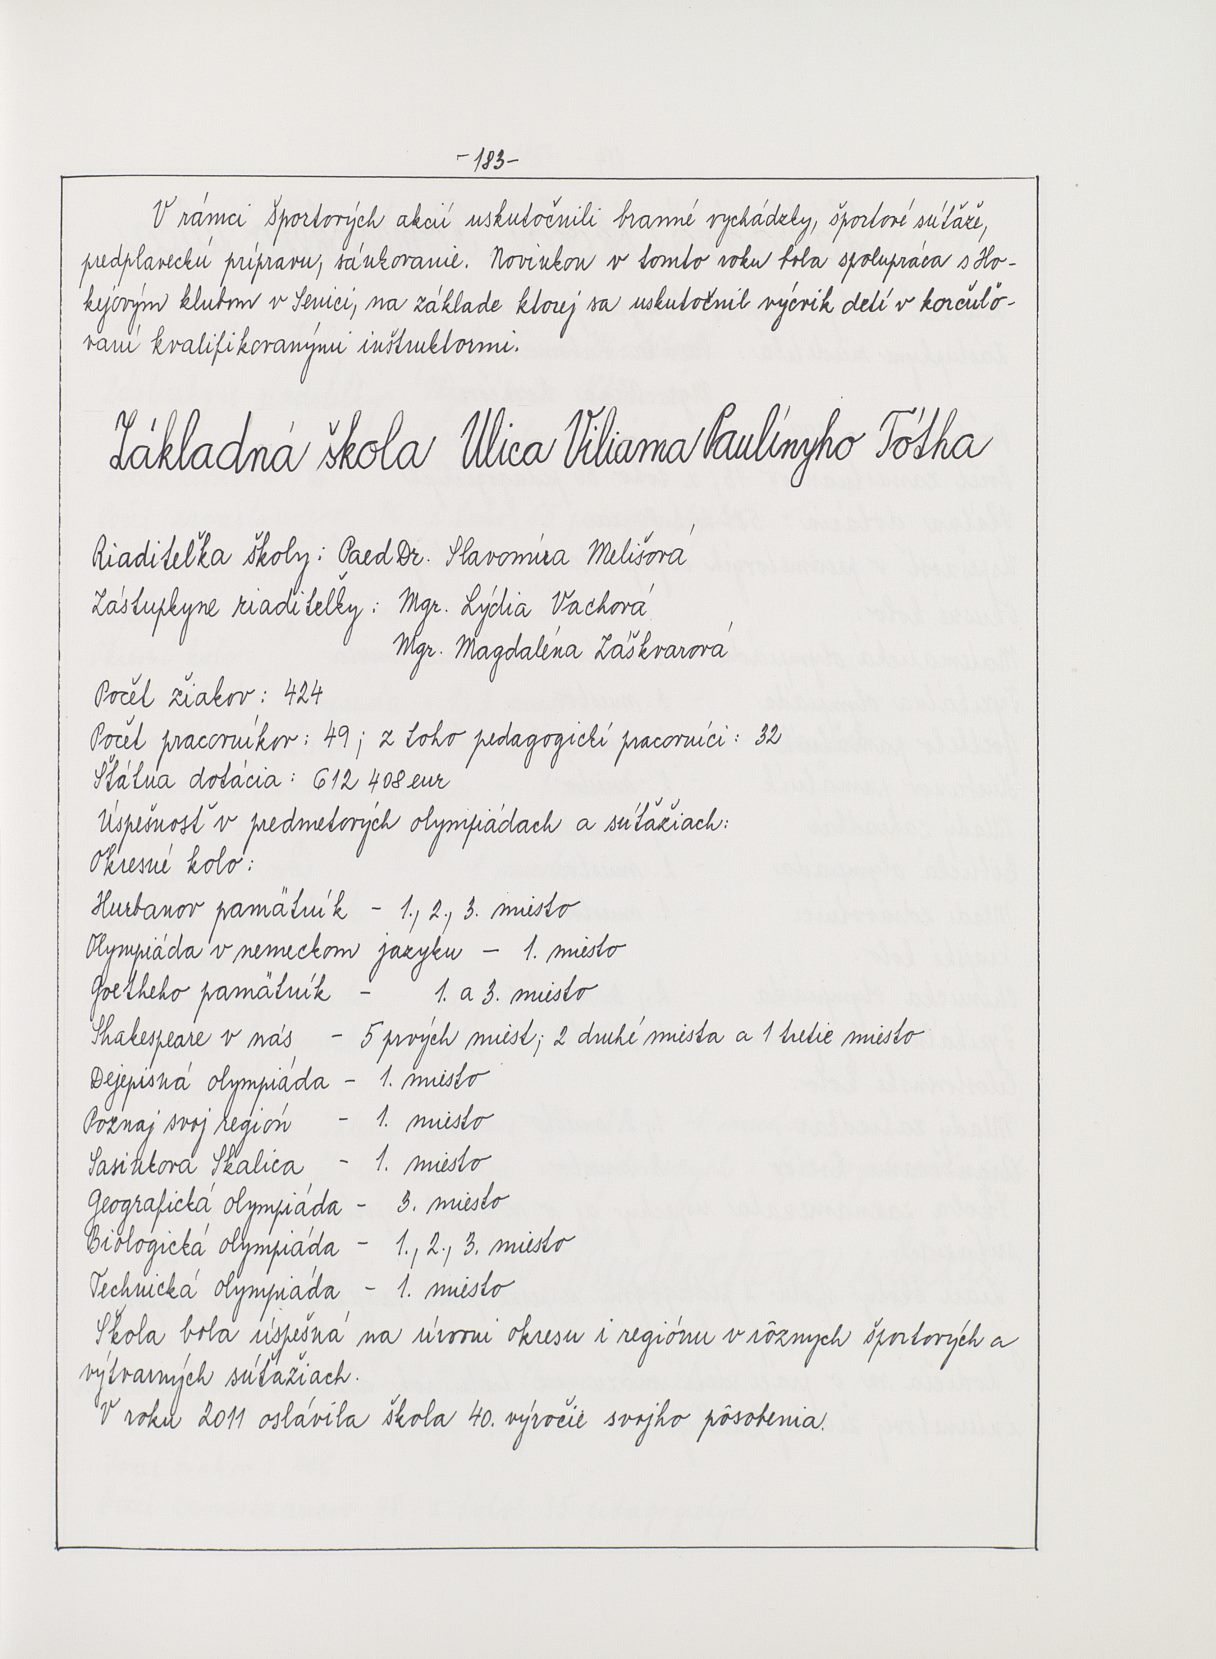 -183-
V rámci športových akcií uskutočnili branné vychádzky, športové súťaže,
predplaveckú prípravu, sánkovanie. Novinkou v tomto roku bola spolupráca s Ho-
kejovým klubom v Senici, na základe ktorej sa uskutočnil výcvik detí v korčuľo-
vaní kvalifikovanými inštruktormi.
Základná škola Ulica Viliama Paulínyho Tótha
Riaditeľka školy: PaedDr. Slavomíra Melišová
Zástupkyne riaditeľky: Mgr. Lýdia Vachová
Mgr. Magdaléna Záškvarová
Počet žiakov: 424
Počet pracovníkov: 49; z toho pedagogickí pracovníci: 32
Štátna dotácia: 612 408 eur
Úspešnosť v predmetových olympiádach a súťažiach:
Okresné kolo:
Hurbanov pamätník - 1., 2., 3. miesto
Olympiáda v nemeckom jazyku - 1. miesto
Goetheho pamätník - 1. a 3. miesto
Shakespeare v nás - 5 prvých miest; 2 druhé miesta a 1 tretie miesto
Dejepisná olympiáda - 1. miesto
Poznaj svoj región - 1. miesto
Sasinkova Skalica - 1. miesto
Geografická olympiáda - 3. miesto
Biologická olympiáda - 1., 2., 3. miesto
Technická olympiáda - 1. miesto
Škola bola úspešná na úrovni okresu i regiónu v rôznych športových a
výtvarných súťažiach.
V roku 2011 oslávila škola 40. výročie svojho pôsobenia.